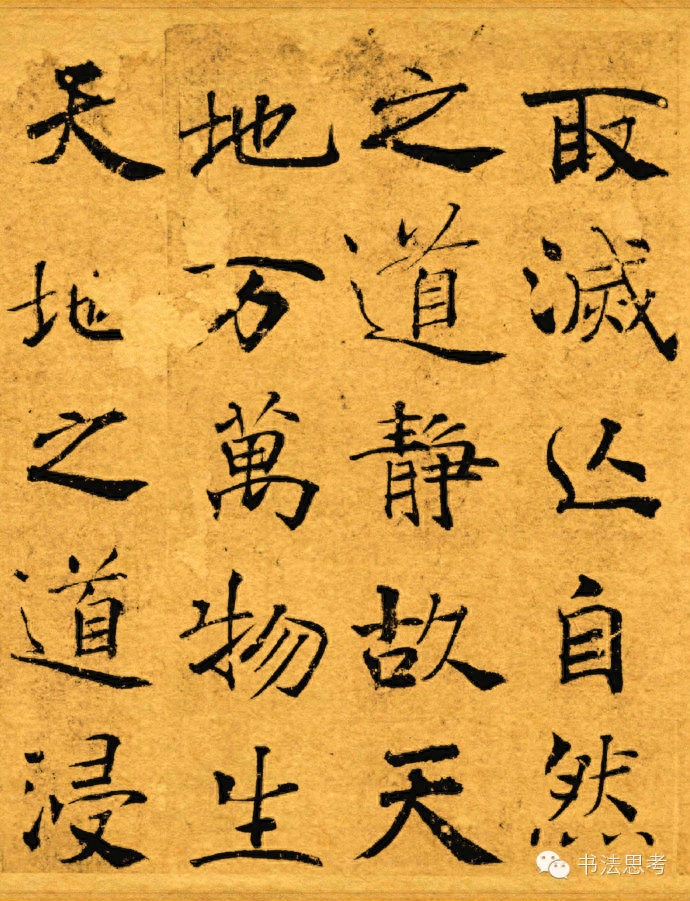 取滅亾自然
之道靜故天
地万萬物生
天地之道浸
书法思考